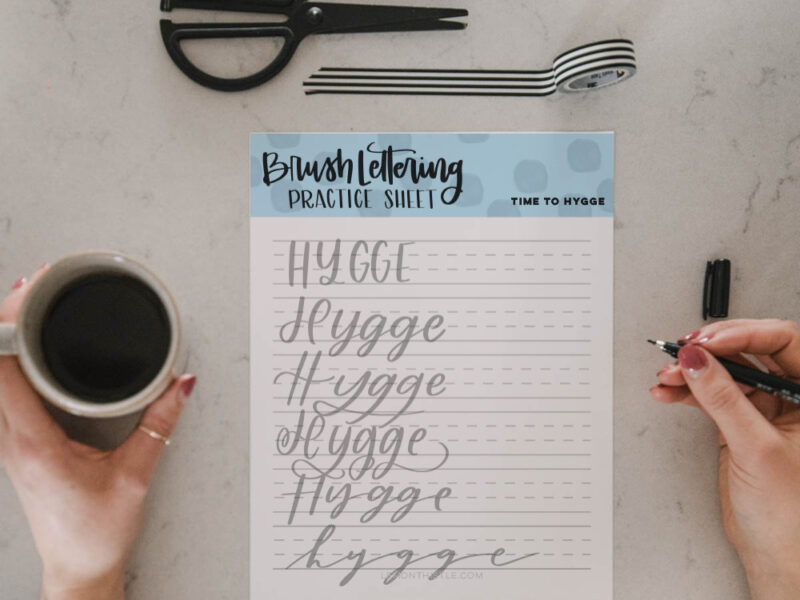 Brush Lettering
PRACTICE SHEET
TIME TO HYGGE
HYGGE
Hygge
Hygge
Hygge
Hygge
hygge
LEMONTHISTLE.COM